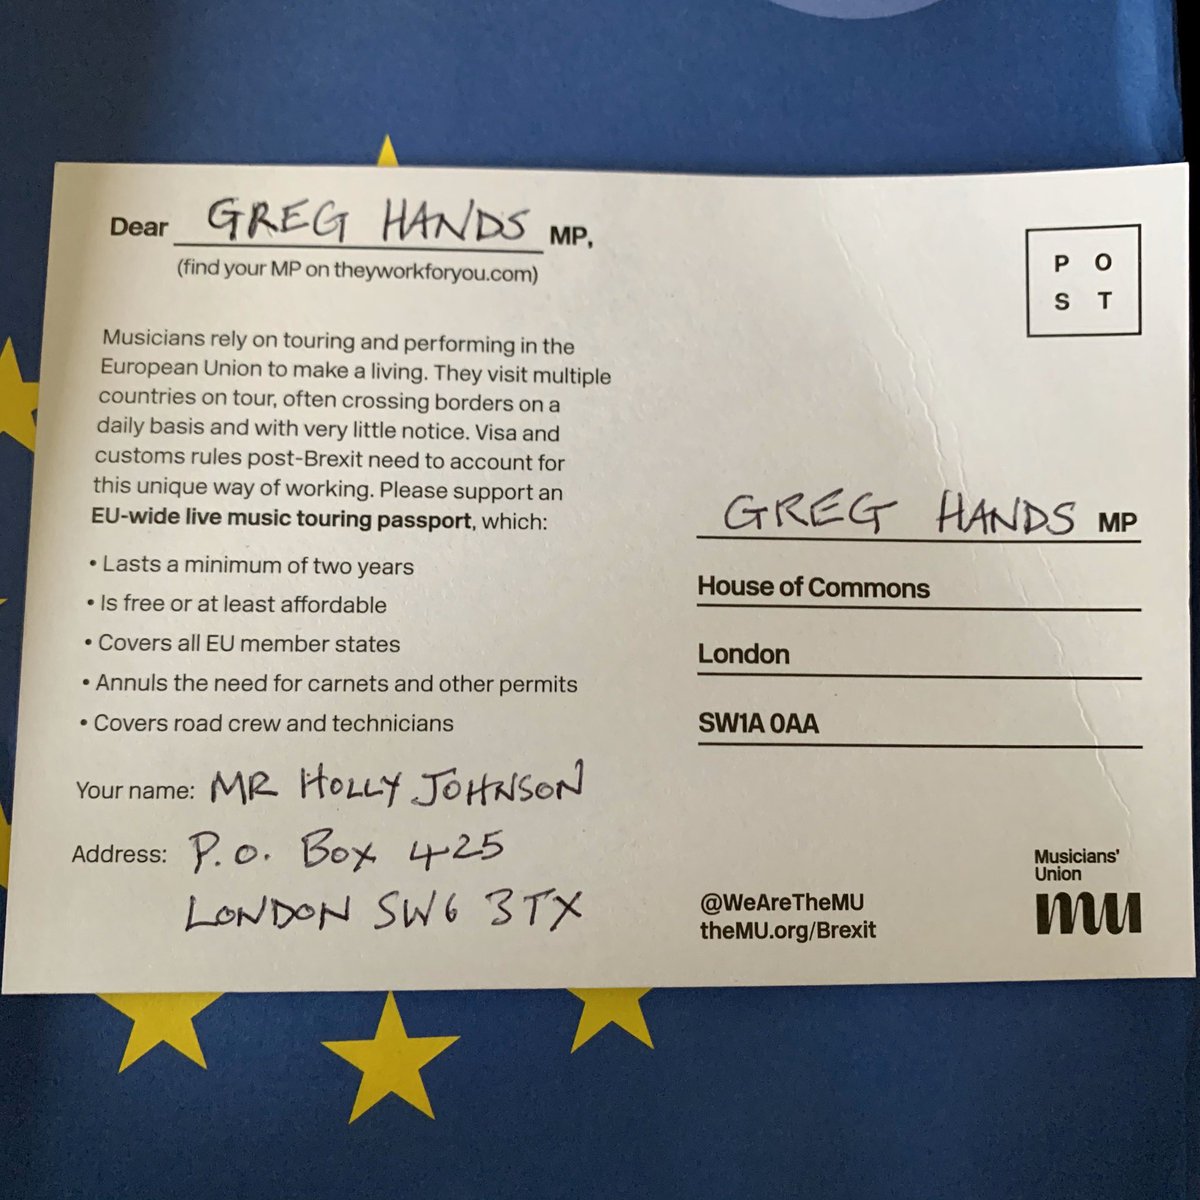 Dear GREG HANDS MP,
(find your MP on theyworkforyou.com)
Musicians rely on touring and performing in the
European Union to make a living. They visit multiple
countries on tour, often crossing borders on a
daily basis and with very little notice. Visa and
customs rules post-Brexit need to account for
this unique way of working. Please support an
EU-wide live music touring passport, which:
• Lasts a minimum of two years
• Is free or at least affordable
• Covers all EU member states
• Annuls the need for carnets and other permits
• Covers road crew and technicians
Your name: MR HOLLY JOHNSON
Address: P.O. Box 425
LONDON SW6 3TX
P O
S T
GREG HANDS MP
House of Commons
London
SW1A 0AA
@WeAreTheMU
theMU.org/Brexit
Musicians'
Union
mu